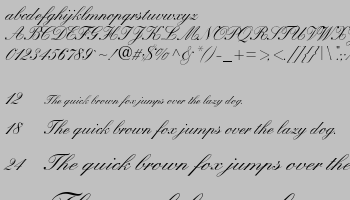 abcdefghijklmnopqrstuvwxyz
ABCDEFGHIJKLMNOPQRSTUVWX
0123456789~!@#$%^&*()-_+=>,<.//{}|\:;
12 The quick brown fox jumps over the lazy dog.
18 The quick brown fox jumps over the lazy dog.
24 The quick brown fox jumps over the